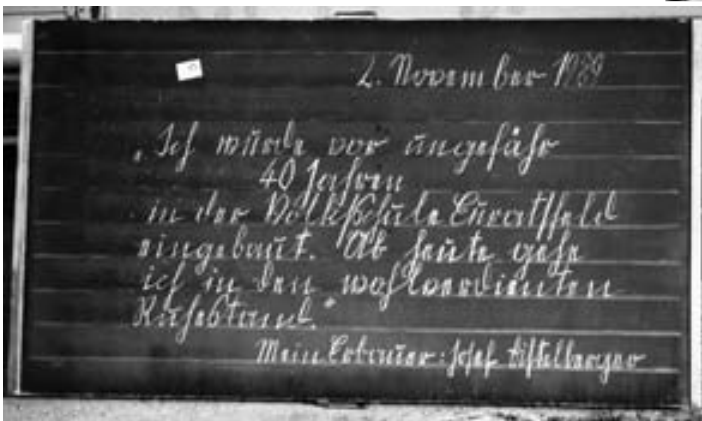 2. November 1989
„Ich wurde vor ungefähr
40 Jahren
in der Volksschule Euratsfeld
eingebaut. Ab heute gehe
ich in den wohlverdienten
Ruhestand."
Mein Erbauer: Josef